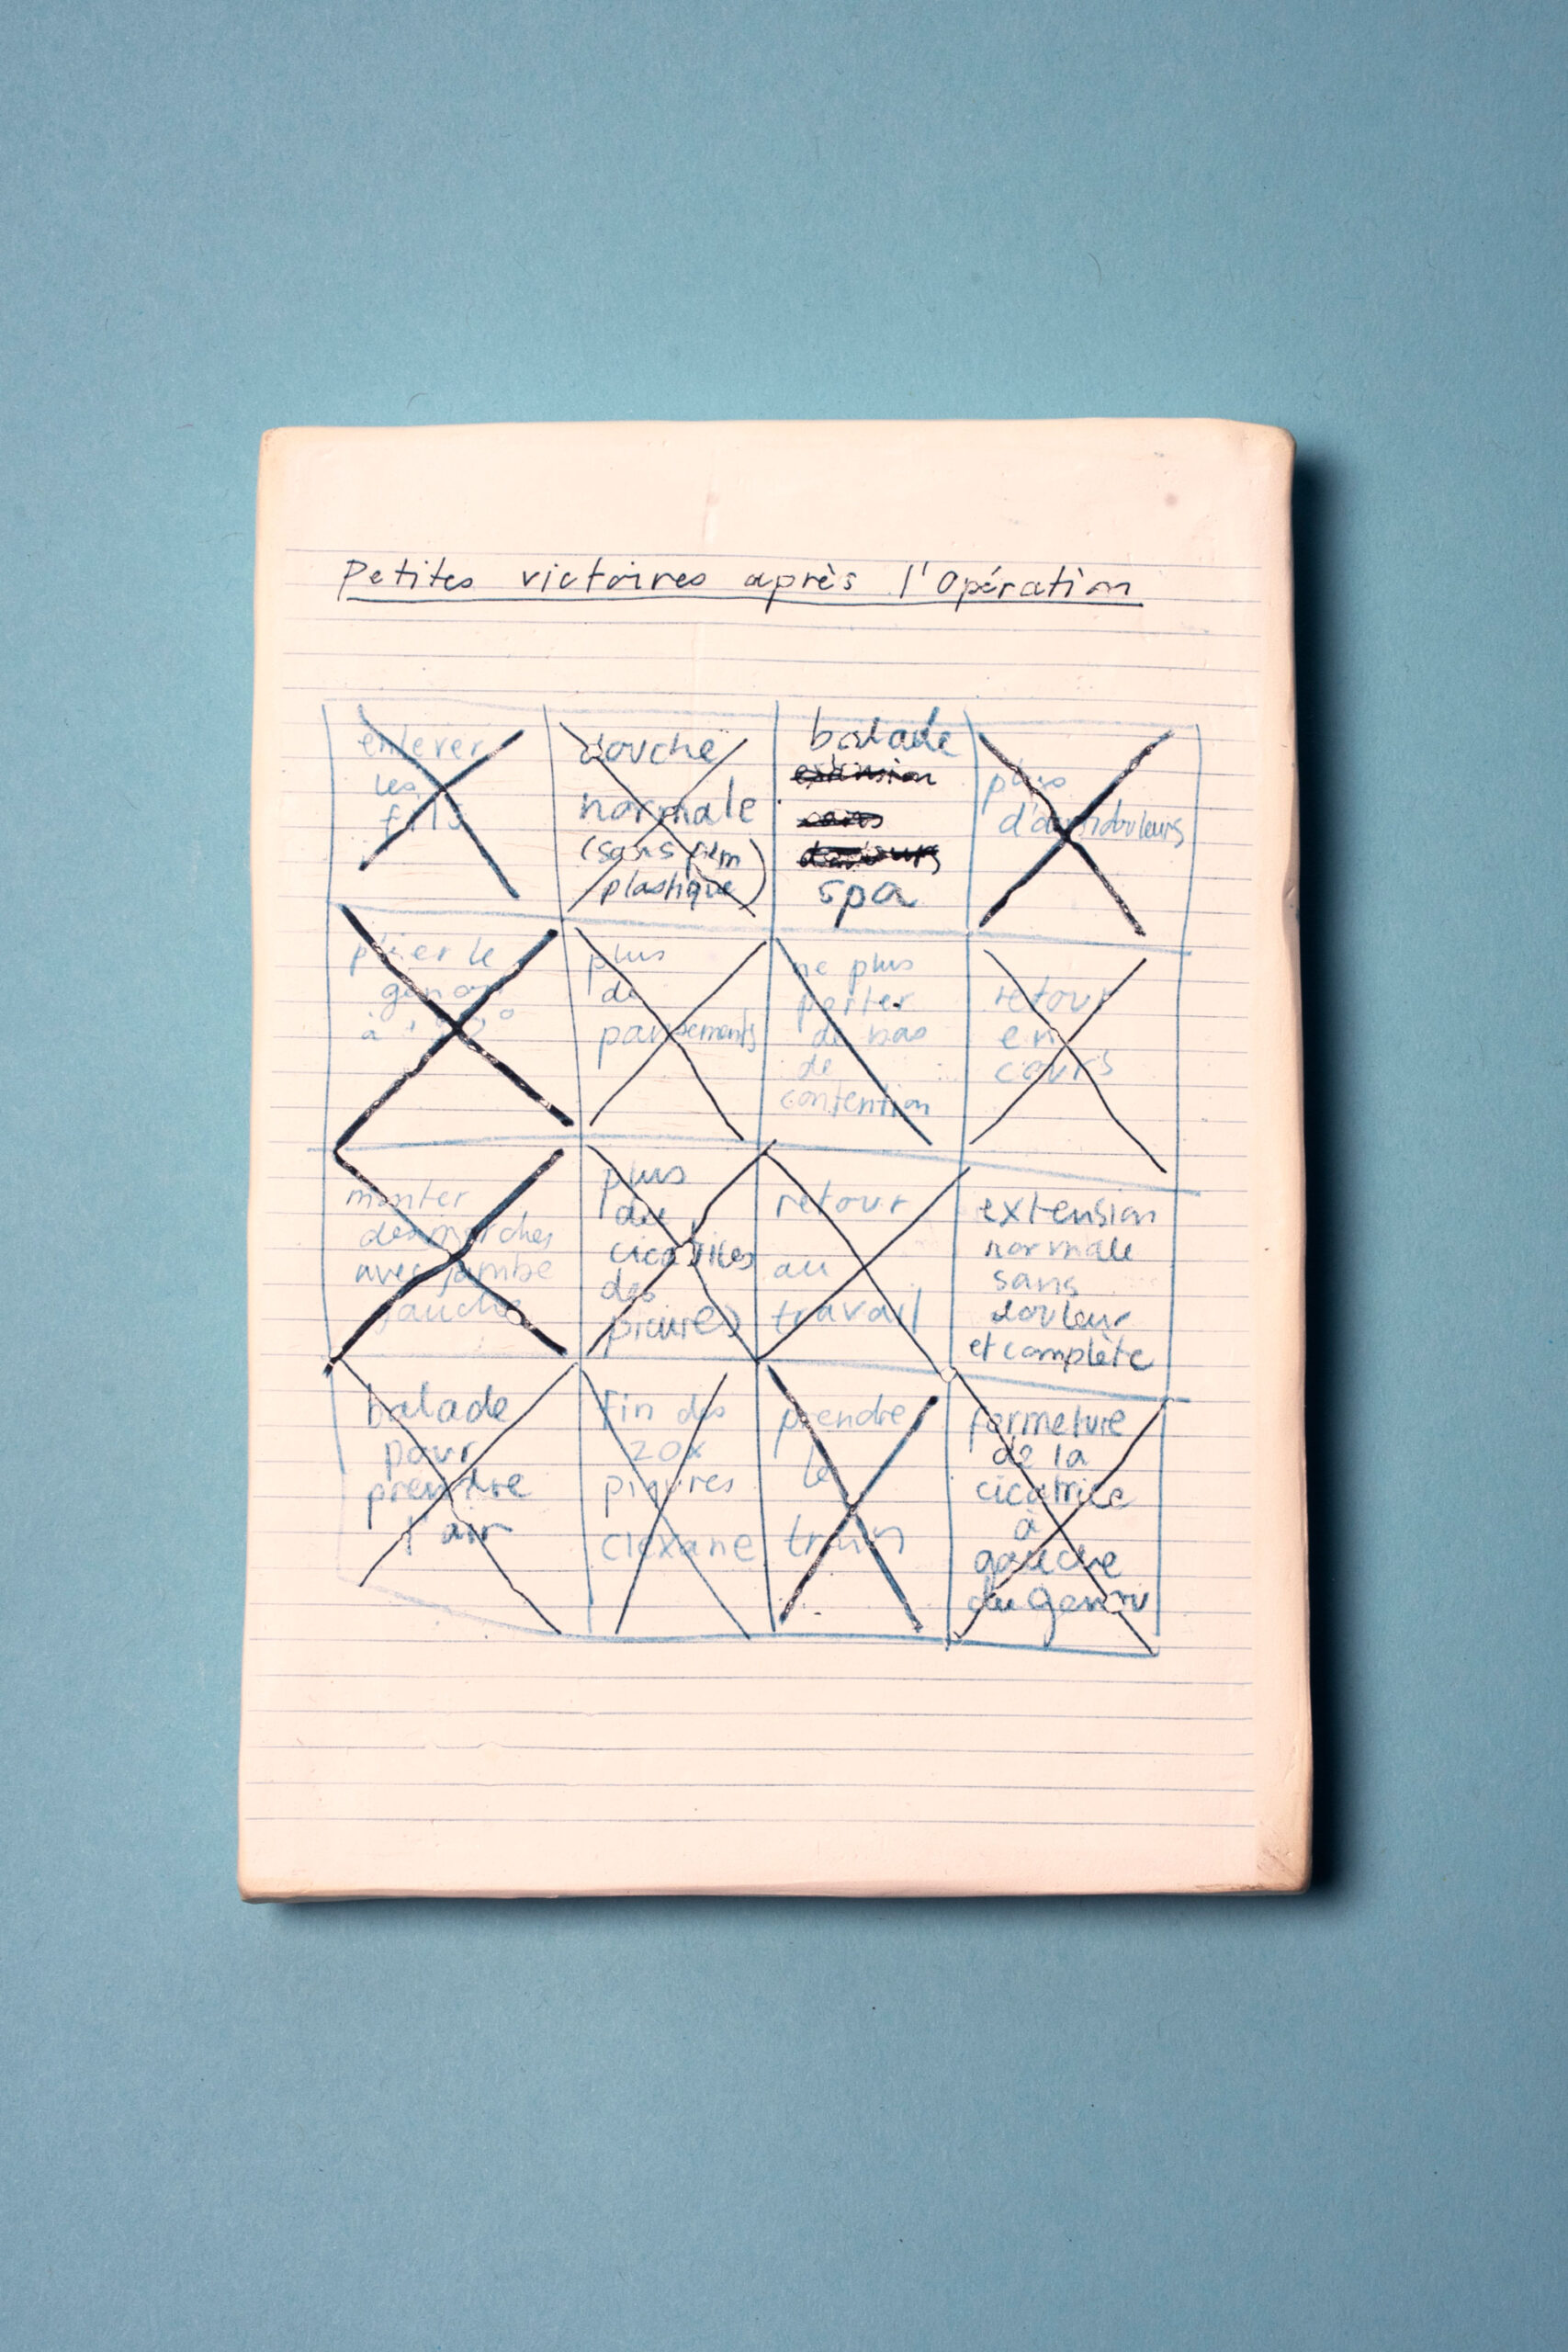 Petites victoires après l'Opération
enlever
les
fils
douche
normale
(sans film
plastique)
balade
extension
sans
douleurs
spa
plus
d'antidouleurs
plier le
genou
à °
plus
de
pansements
ne plus
porter
de bas
de
contention
retour
en
cours
monter
des marches
avec jambe
gauche
plus
de
cicatrices
des
piqures)
retour
au
travail
extension
normale
sans
douleur
et complète
balade
pour
prendre
l'air
fin des
20x
piqures
clexane
prendre
le
train
fermeture
de la
cicatrice
à
gauche
du genou